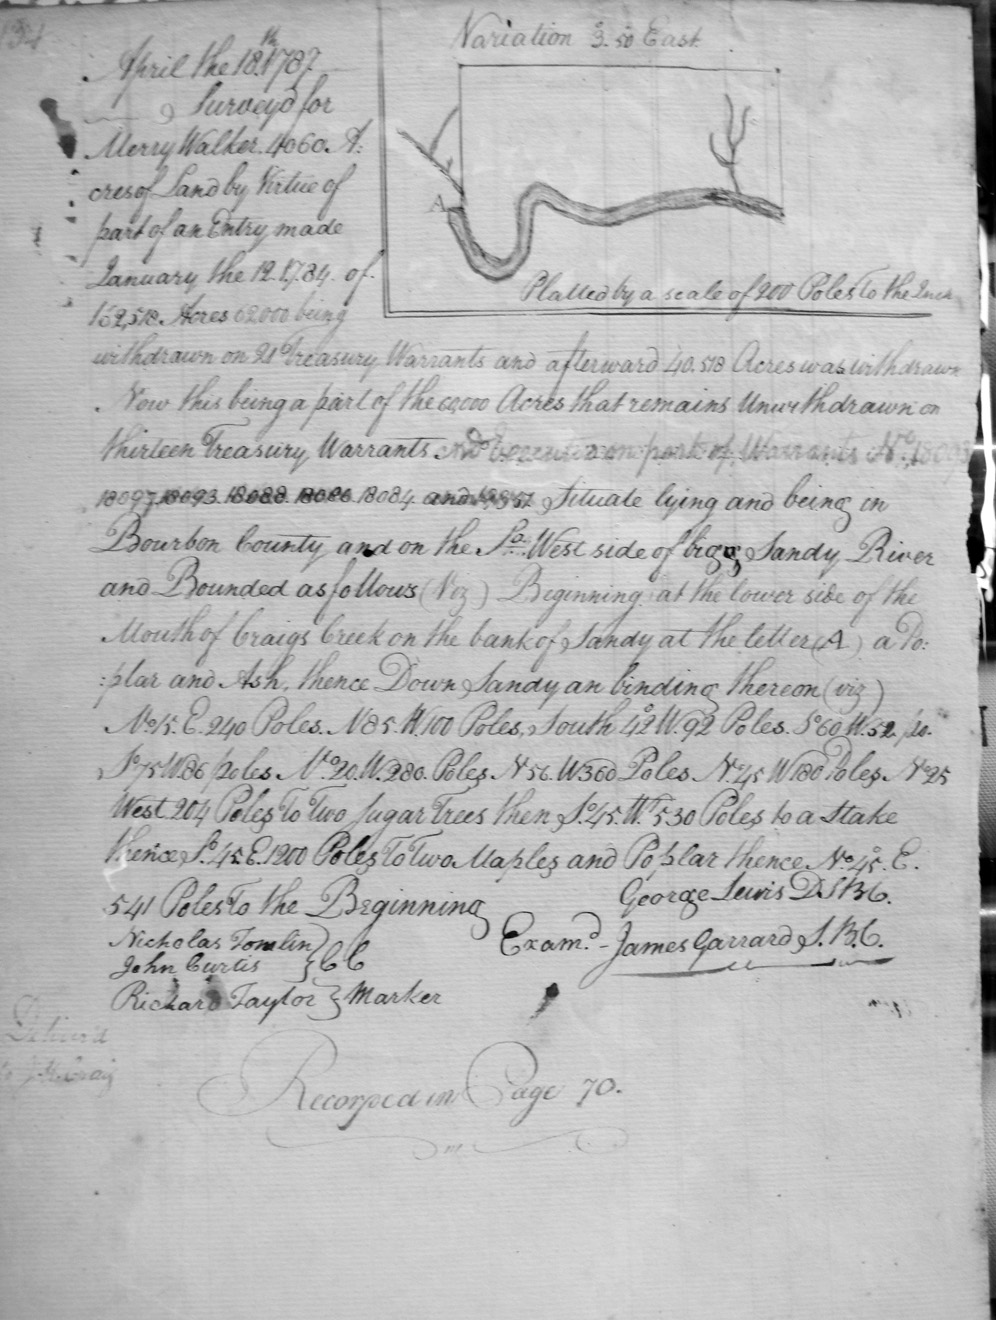 Variation 3.50 East
April the 18th 1787
Surveyd for
Merry Walker. 4060. A:
cres of Land by Virtue of
part of an Entry made
January the 12. 1784. of
A
Platted by a scale of 200 Poles To the Inch
162,518. Acres 62000 being
withdrawn on 21 Treasury Warrants and afterward 40.518 Acres was withdrawn
Now this being a part of the 60,000 Acres that remains Unwithdrawn on
thirteen Treasury Warrants part of Warrants No.
18097. 18093. 18088. 18086. 18084. and Situate lying and being in
Bourbon County, and on the So. West side of bigg Sandy River
and Bounded as follows (Viz) Beginning at the lower side of the
Mouth of Craigs Creek on the bank of Sandy at the letter (A) a Po:
:plar and Ash, thence Down Sandy an binding thereon (viz)
No. 15. E. 240 Poles. N 85. W. 100 Poles, South 42 W. 92 Poles. So 60 W. 52 po.
So 75 W. 86 poles No. 20. W. 280. Poles N 56. W 360 Poles. No. 45 W 180 Poles No 25
West 204 Poles To Two sugar Trees then So. 45. W. 530 Poles to a Stake
thence So. 45. E. 1200 Poles To Two Maples and Poplar thence No. 45. E.
541 Poles To the Beginning
George Lewis D.S B C.
Nicholas Tomlin
John Curtis } C C
Examd. - James Garrard S. B. C.
Richard Taylor } Marker
Deliverd
Recorped in Page 70.